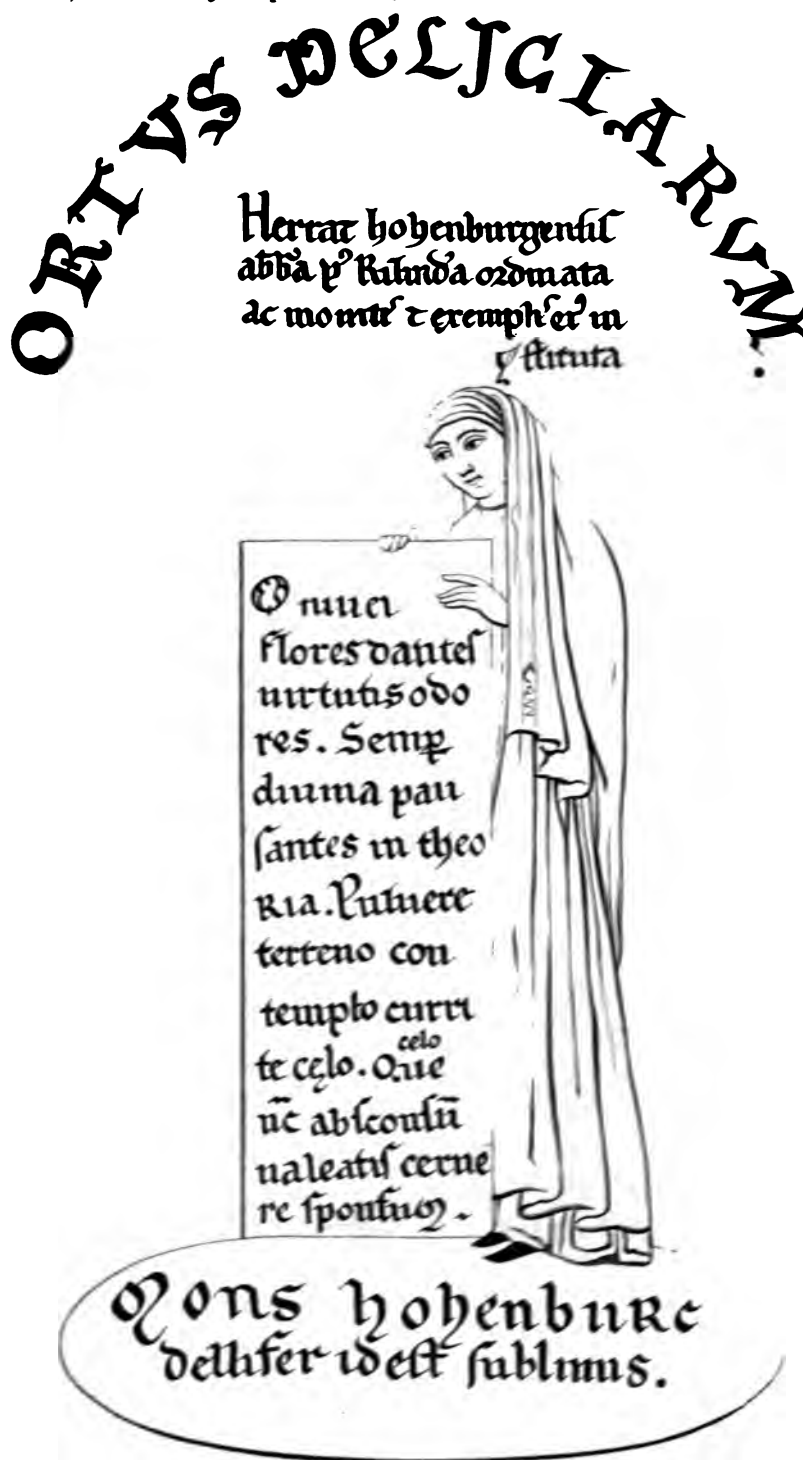 ORTVS DELICIARVM.
Herrat hohenburgensis
abb̄a p᷒ Rilind̄a ordinata
ac monitis ⁊ exemplis ei᷒ in
stituta
O niuei
flores dantes
uirtutis odo
res. Semꝑ
diuina pau
santes in theo
Ria. Puluere
terreno con
tempto curri
celo
te cęlo. Que
nc̄ absconsū
ualeatis cerne
re sponsum.
Mons hohenbuRc
dellifer id est sublimus.